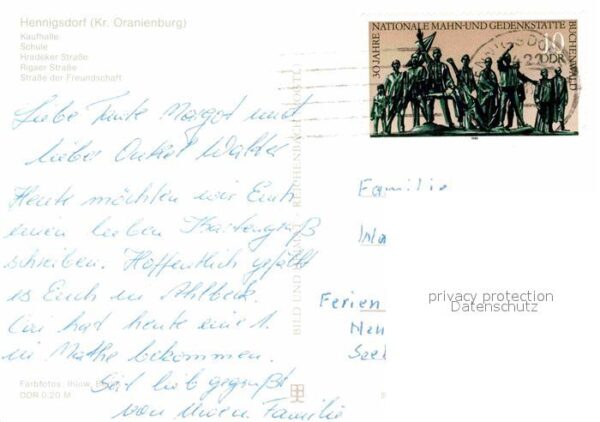 Hennigsdorf (Kr. Oranienburg)
Kaufhalle
Schule
Hradeker Straße
Rigaer Straße
Straße der Freundschaft
30 JAHRE NATIONALE MAHN-UND GEDENKSTÄTTE BUCHENWALD
10
DDR
Liebe Tante Margot und
lieber Onkel Walter
Heute möchten wir Euch
einen lieben Kartengruß
schreiben. Hoffentlich gefällt
es Euch in Ahlbeck.
hat heute eine 1.
in Mathe bekommen.
Seid lieb gegrüßt
von Familie
BILD UND REICHENBACH
Familie
Ferien
privacy protection
Datenschutz
Farbfotos:
DDR 0,20 M